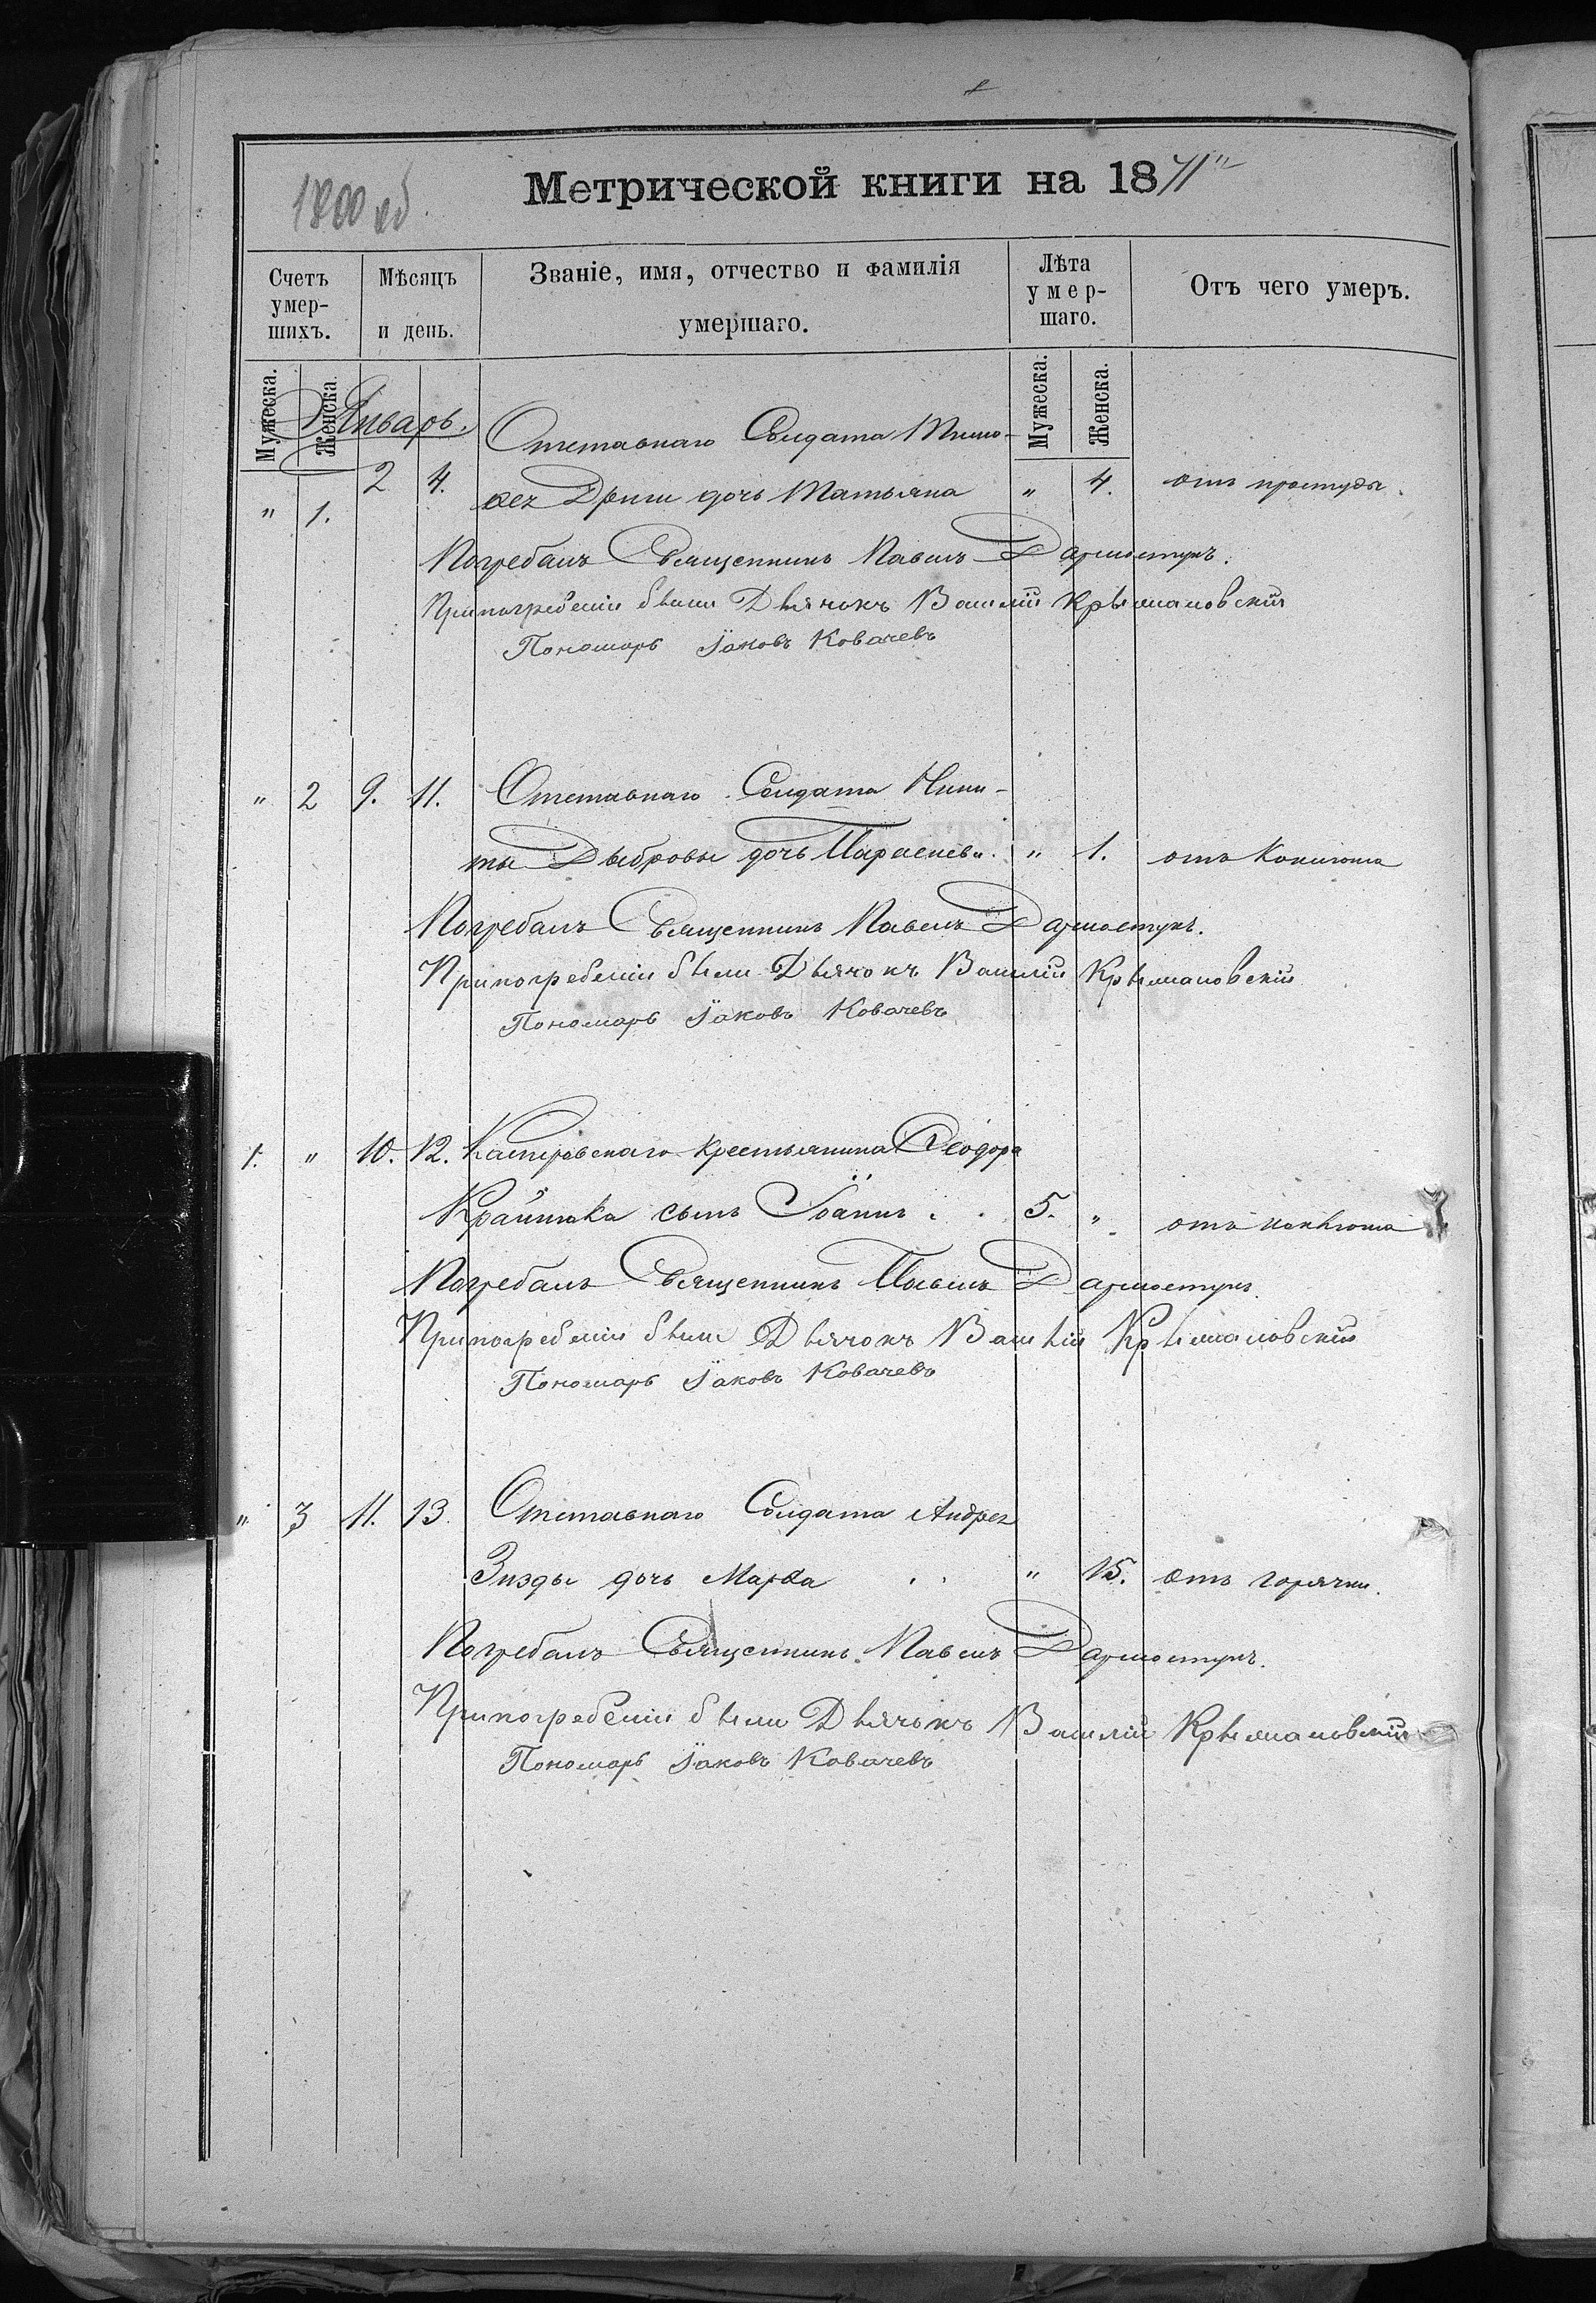 1800 об
Метрической книги на 1871
Счетъ умер-шихъ.
Мѣсяцъ и день.
Званіе, имя, отчество и фамилія умершаго.
Лѣта умер-шаго.
Отъ чего умеръ.
Мужеска.
Женска.
Мужеска.
Женска.
Январь.
Отставнаго Солдата Тимо-
" 1. 2 4. ѳея Дриги дочь Татьяна " 4. отъ простуды.
Погребалъ Священникъ Павелъ
Припогребеніи были Дьячокъ Василій Крыжановскій
Пономарь Іаковъ Ковачевъ
" 2 9. 11. Отставнаго Солдата Ники-
ты Дыбровы дочь Параскева. " 1. отъ коклюша
Погребалъ Священникъ Павелъ
Припогребеніи были Дьячокъ Василій Крыжановскій
Пономарь Іаковъ Ковачевъ
1. " 10. 12. крестьянина Ѳеодора
сынъ Іоаннъ . . 5. " отъ коклюша
Погребалъ Священникъ Павелъ
Припогребеніи были Дьячокъ Василій Крыжановскій
Пономарь Іаковъ Ковачевъ
" 3 11. 13. Отставнаго Солдата Андрея
Гизды дочь Марѳа . . " 15. отъ горячки.
Погребалъ Священникъ Павелъ
Припогребеніи были Дьячокъ Василій Крыжановскій
Пономарь Іаковъ Ковачевъ